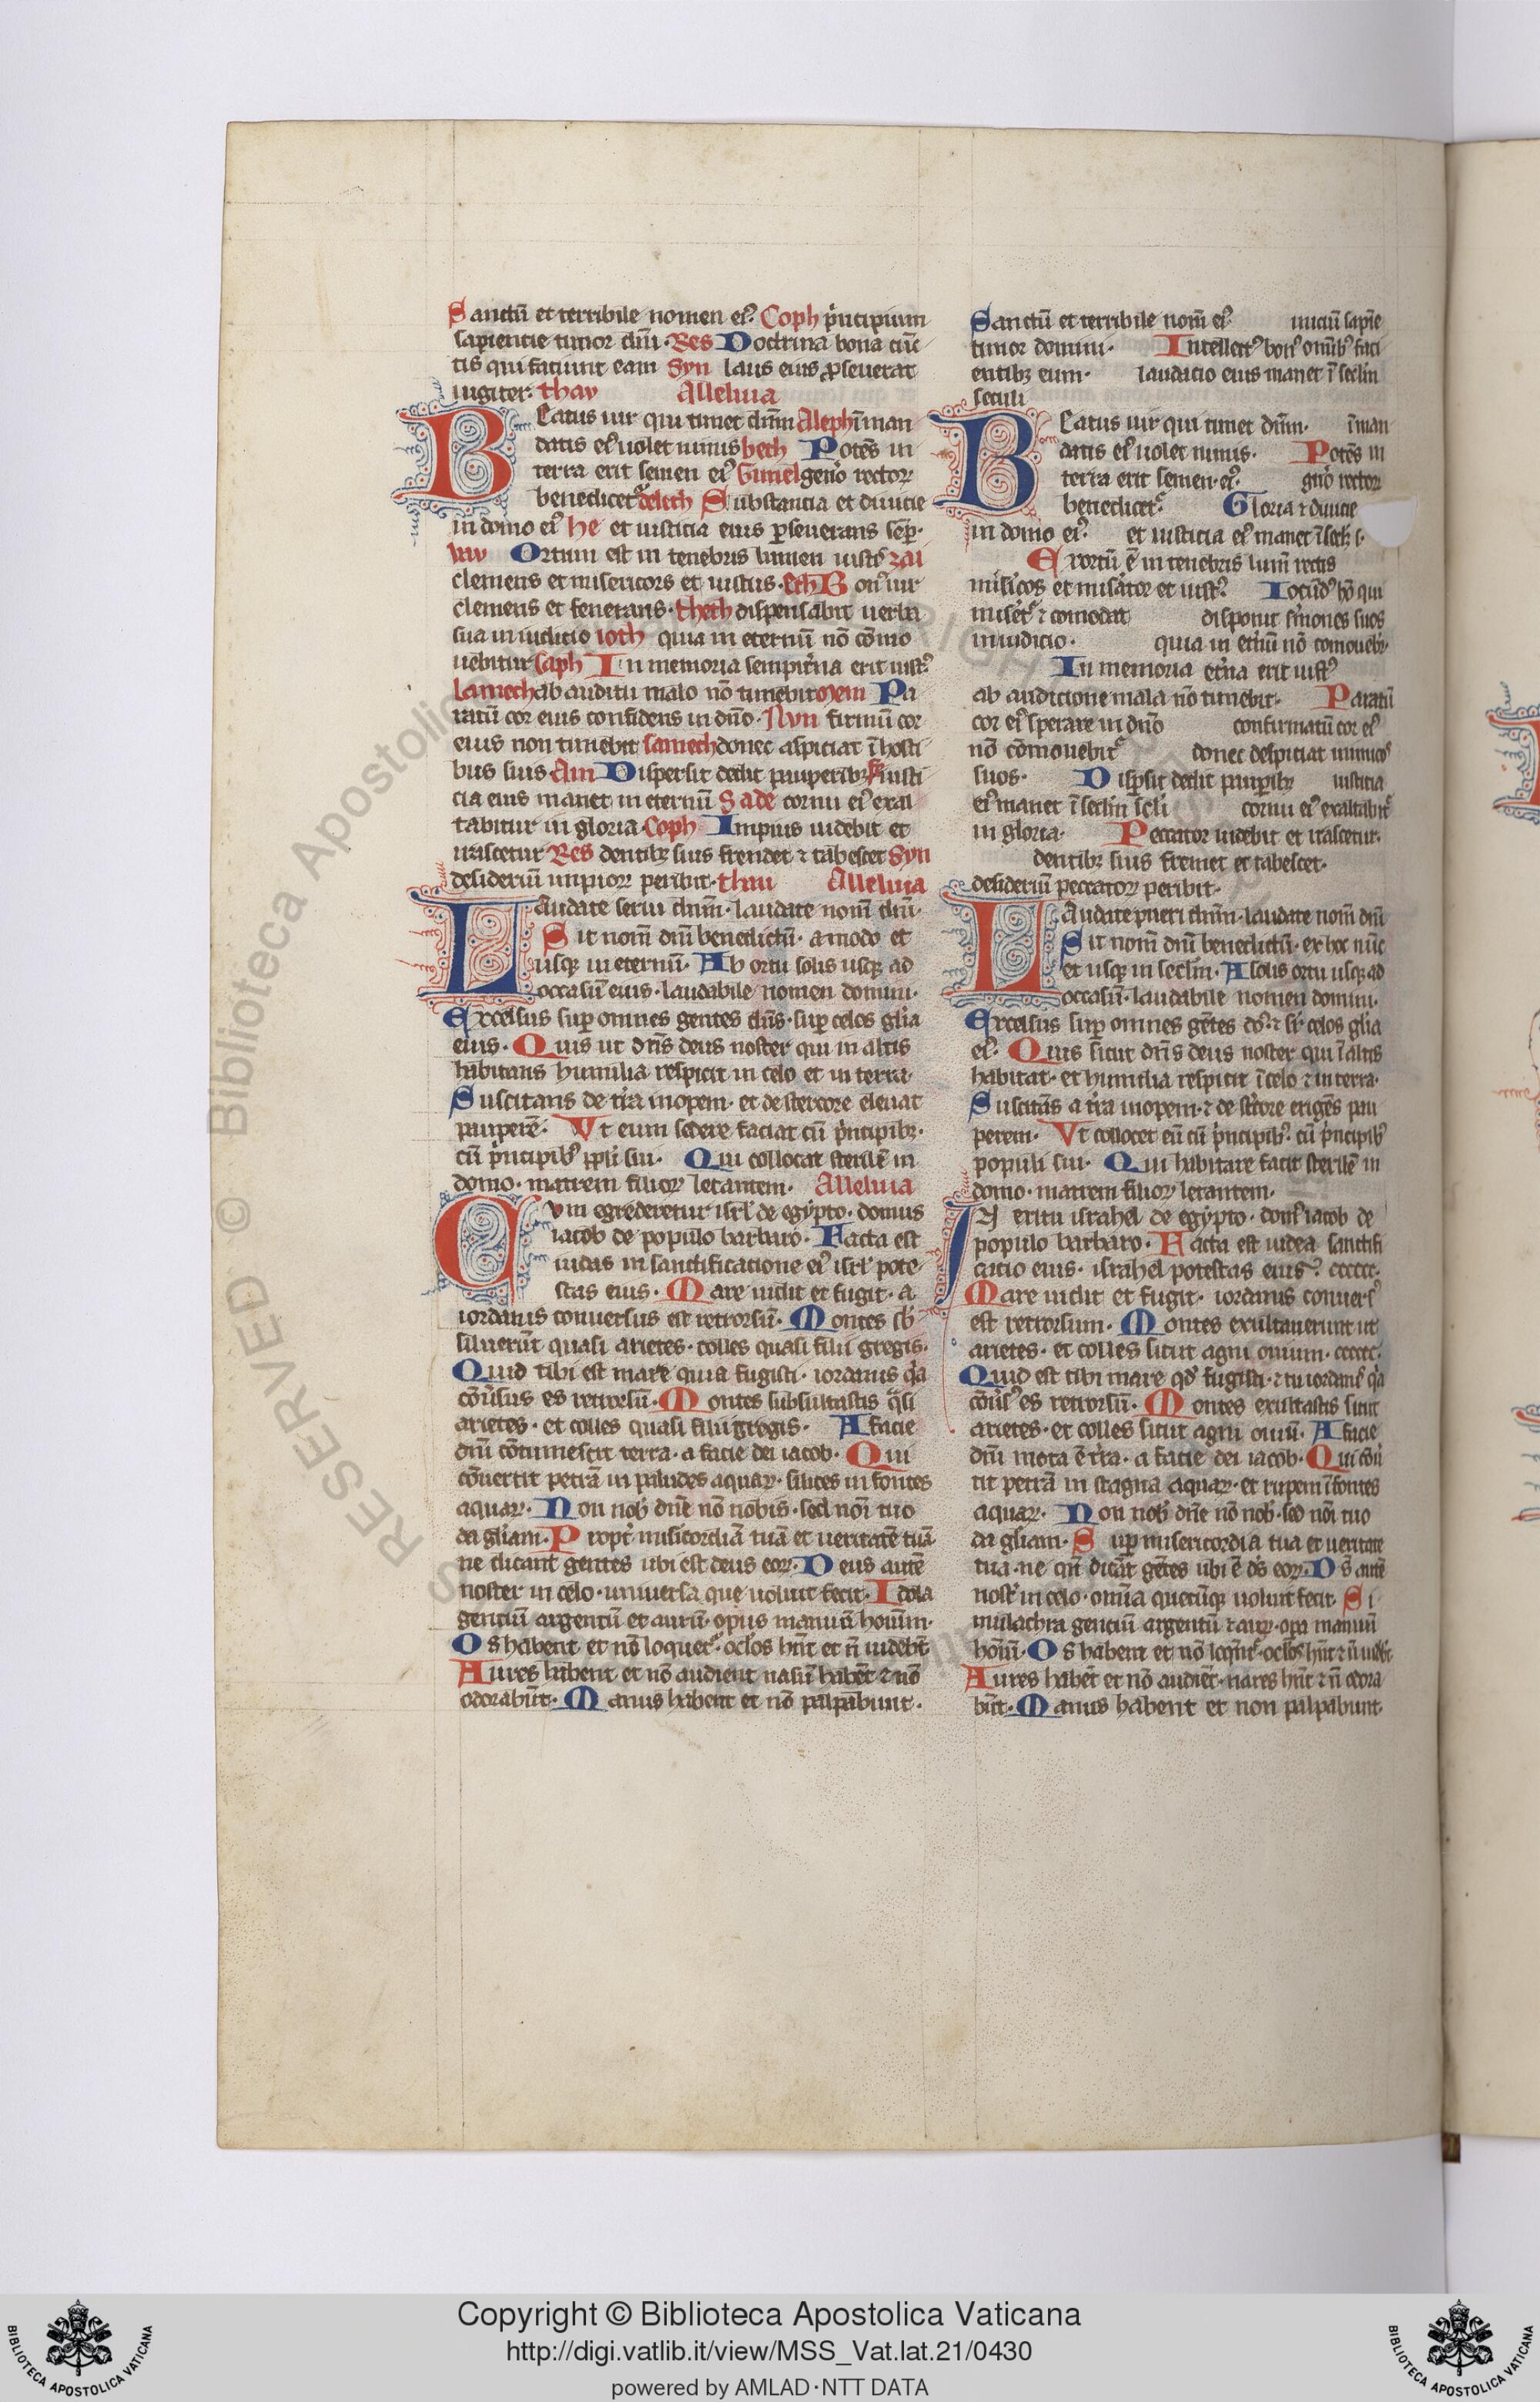 Sanctū et terribile nomen eiꝰ Coph p̄ncipium
sapientie timor dn̄i · Res Doctrina bona cūc
tis qui faciunt eam Syn laus eius ꝑseuerat
iugiter · thav Alleluia
Beatus uir qui timet dn̄m Aleph ī man
datis eiꝰ uolet nimis beth Potēs in
terra erit semen eiꝰ Gimel
benedicet᷑ deleth Substancia et diuicie
in domo eiꝰ he et iusticia eius ꝑseuerans sēp̲ ·
vav Ortum est in tenebris lumen iustꝭ zai
clemens et misericors et iustus · heth Bonꝰ uir
clemens et fenerans · theth dispensabit uerba
sua in iudicio ioth quia in eternū nō cōmo
uebitur caph In memoria sempit̄na erit iustꝰ
lamech ab auditu malo nō timebit mem Pa
ratū cor eius confidens in dn̄o · Nvn firmū cor
eius non timebit samech donec aspiciat ī hosti
bus suis Ain Dispersit dedit pauperibꝫ fe iusti
cia eius manet in eternū Sade cornu eiꝰ exal
tabitur in gloria Coph Impius uidebit et
irascetur Res dentibꝫ suis frendet ⁊ tabescet Syn
desideriū impioꝝ peribit · thau Alleluia
Laudate serui dn̄m · laudate nom̄ dn̄i ·
Sit nom̄ dn̄i benedictū · amodo et
usqꝫ in eternū · Ab ortu solis usqꝫ ad
occasū eius · laudabile nomen domini ·
Excelsus sup̲ omnes gentes dn̄s · sup̲ celos gl̄ia
eius · Quis ut dn̄s deus noster qui in altis
habitans humilia respicit in celo et in terra ·
Suscitans de t̄ra inopem · et de stercore eleuat
pauperē · Vt eum sedere faciat cū p̄ncipibꝫ ·
cū p̄ncipibꝰ ppl̄i sui · Qui collocat sterilē in
domo · matrem filioꝝ letantem · Alleluia
Cvm egrederetur isrl̄ de egypto · domus
iacob de populo barbaro · Facta est
iudas in sanctificatione eiꝰ isrl̄ pote
stas eius · Mare uidit et fugit · a
iordanis conuersus est retrorsū · Montes sb̄
siluerūt quasi arietes · colles quasi filii gregis ·
Quid tibi est mare quia fugisti · iordanis q̄a
cōu̓sus es retrorsū · Montes subsultastis q̄si
arietes · et colles quasi filii gregis · A facie
dn̄i cōtumescit terra · a facie dei iacob · Qui
cōuertit petrā in paludes aquaꝝ · silices in fontes
aquaꝝ · Non nob̄ dn̄e nō nobis · sed noī tuo
da gl̄iam · Propt̓ misicordiā tuā et ueritatē tuā
ne dicant gentes ubi est deus eoꝝ · Deus autē
noster in celo · uniuersa que uoluit fecit · Idola
gentiū argentū et aurū · opus manuū hoīum ·
Os habent et nō loquet᷑ · ocl̄os hn̄t et n̄ uidebt̄
Aures habent et nō audient nasū habēt ⁊ nō
odorabūt · Manus habent et nō palpabunt ·
Sanctū et terribile nom̄ eiꝰ iniciū sapīe
timor domini · Intellectꝰ bonꝰ omībꝰ faci
entibꝫ eum · laudacio eius manet ī secl̄m
seculi
Beatus uir qui timet dn̄m · ī man
datis eiꝰ uolet nimis · Potēs in
terra erit semen eiꝰ gn̄o rectoꝝ
benedicet᷑ Gloria ⁊ diuicie
in domo eiꝰ et iusticia eiꝰ manet ī secl̄m s ·
Exortū ē in tenebris lum̄ rectis
misic̓os et misātor et iustꝰ Iocūdꝰ hō qui
miset̄᷑ ⁊ comodat disponit sm̄ones suos
in iudicio · quia in et̄nū nō comouebit᷑
In memoria et̄na erit iustꝰ
ab audicione mala nō timebit · Paratū
cor eiꝰ sperare in dn̄o confirmatū cor eiꝰ
nō cōmouebit᷑ donec despiciat inimicos
suos · Disp̲sit dedit paup̲ibꝫ iusticia
eiꝰ manet ī secl̄m secl̄i cornu eiꝰ exaltabit᷑
in gloria · Peccator uidebit et irascetur ·
dentibꝫ suis fremet et tabescet ·
desideriū peccatoꝝ peribit ·
Laudate pueri dn̄m · laudate nom̄ dn̄i
Sit nom̄ dn̄i benedictū · ex hoc nūc
et usqꝫ in secl̄m · A solis ortu usqꝫ ad
occasū · laudabile nomen domini ·
Excelsus sup̲ omnes gētes dn̄s ⁊ sr̄ celos gl̄ia
eiꝰ · Quis sicut dn̄s deus noster qui ī altis
habitat · et humilia respicit ī celo ⁊ in terra ·
Suscitās a t̄ra inopem · ⁊ de st̓core erigēs pau
perem · Vt collocet eū cū p̄ncipibꝰ · cū p̄ncipibꝰ
populi sui · Qui habitare facit sterilē in
domo · matrem filioꝝ letantem ·
In exitu israhel de egypto · domꝰ iacob de
populo barbaro · Facta est iudea sanctifi
catio eius · israhel potestas eius · ccccc ·
Mare uidit et fugit · iordanis conuersꝰ
est retrorsum · Montes exultauerunt ut
arietes · et colles sicut agni ouium · ccccc ·
Quid est tibi mare qd̓ fugisti · ⁊ tu iordanis q̄a
cōu̓sꝰ es retrorsū · Montes exultastis sicut
arietes · et colles sicut agni ouiū · A facie
dn̄i mota ē t̄ra · a facie dei iacob · Qui cōu̓
tit petrā in stagna aquaꝝ · et rupem ī fontes
aquaꝝ · Non nob̄ dn̄e nō nob̄ · sed noī tuo
da gl̄iam · Sup̲ misericordia tua et ueritate
tua · ne qn̄ dicāt gētes ubi ē ds̄ eoꝝ · Ds̄ autē
nost̓ in celo · omīa quecūqꝫ uoluit fecit · Si
mulachra gentiū argentū ⁊ auꝝ · opa manuū
hoīuū · Os habent et nō loqūt᷑ · ocl̄os hn̄t ⁊ n̄ uidebt̄
Aures habēt et nō audiēt · nares hn̄t ⁊ n̄ odora
būt · Manus habent et non palpabunt ·
Copyright © Biblioteca Apostolica Vaticana
http://digi.vatlib.it/view/MSS_Vat.lat.21/0430
powered by AMLAD·NTT DATA
BIBLIOTECA APOSTOLICA VATICANA
BIBLIOTECA APOSTOLICA VATICANA